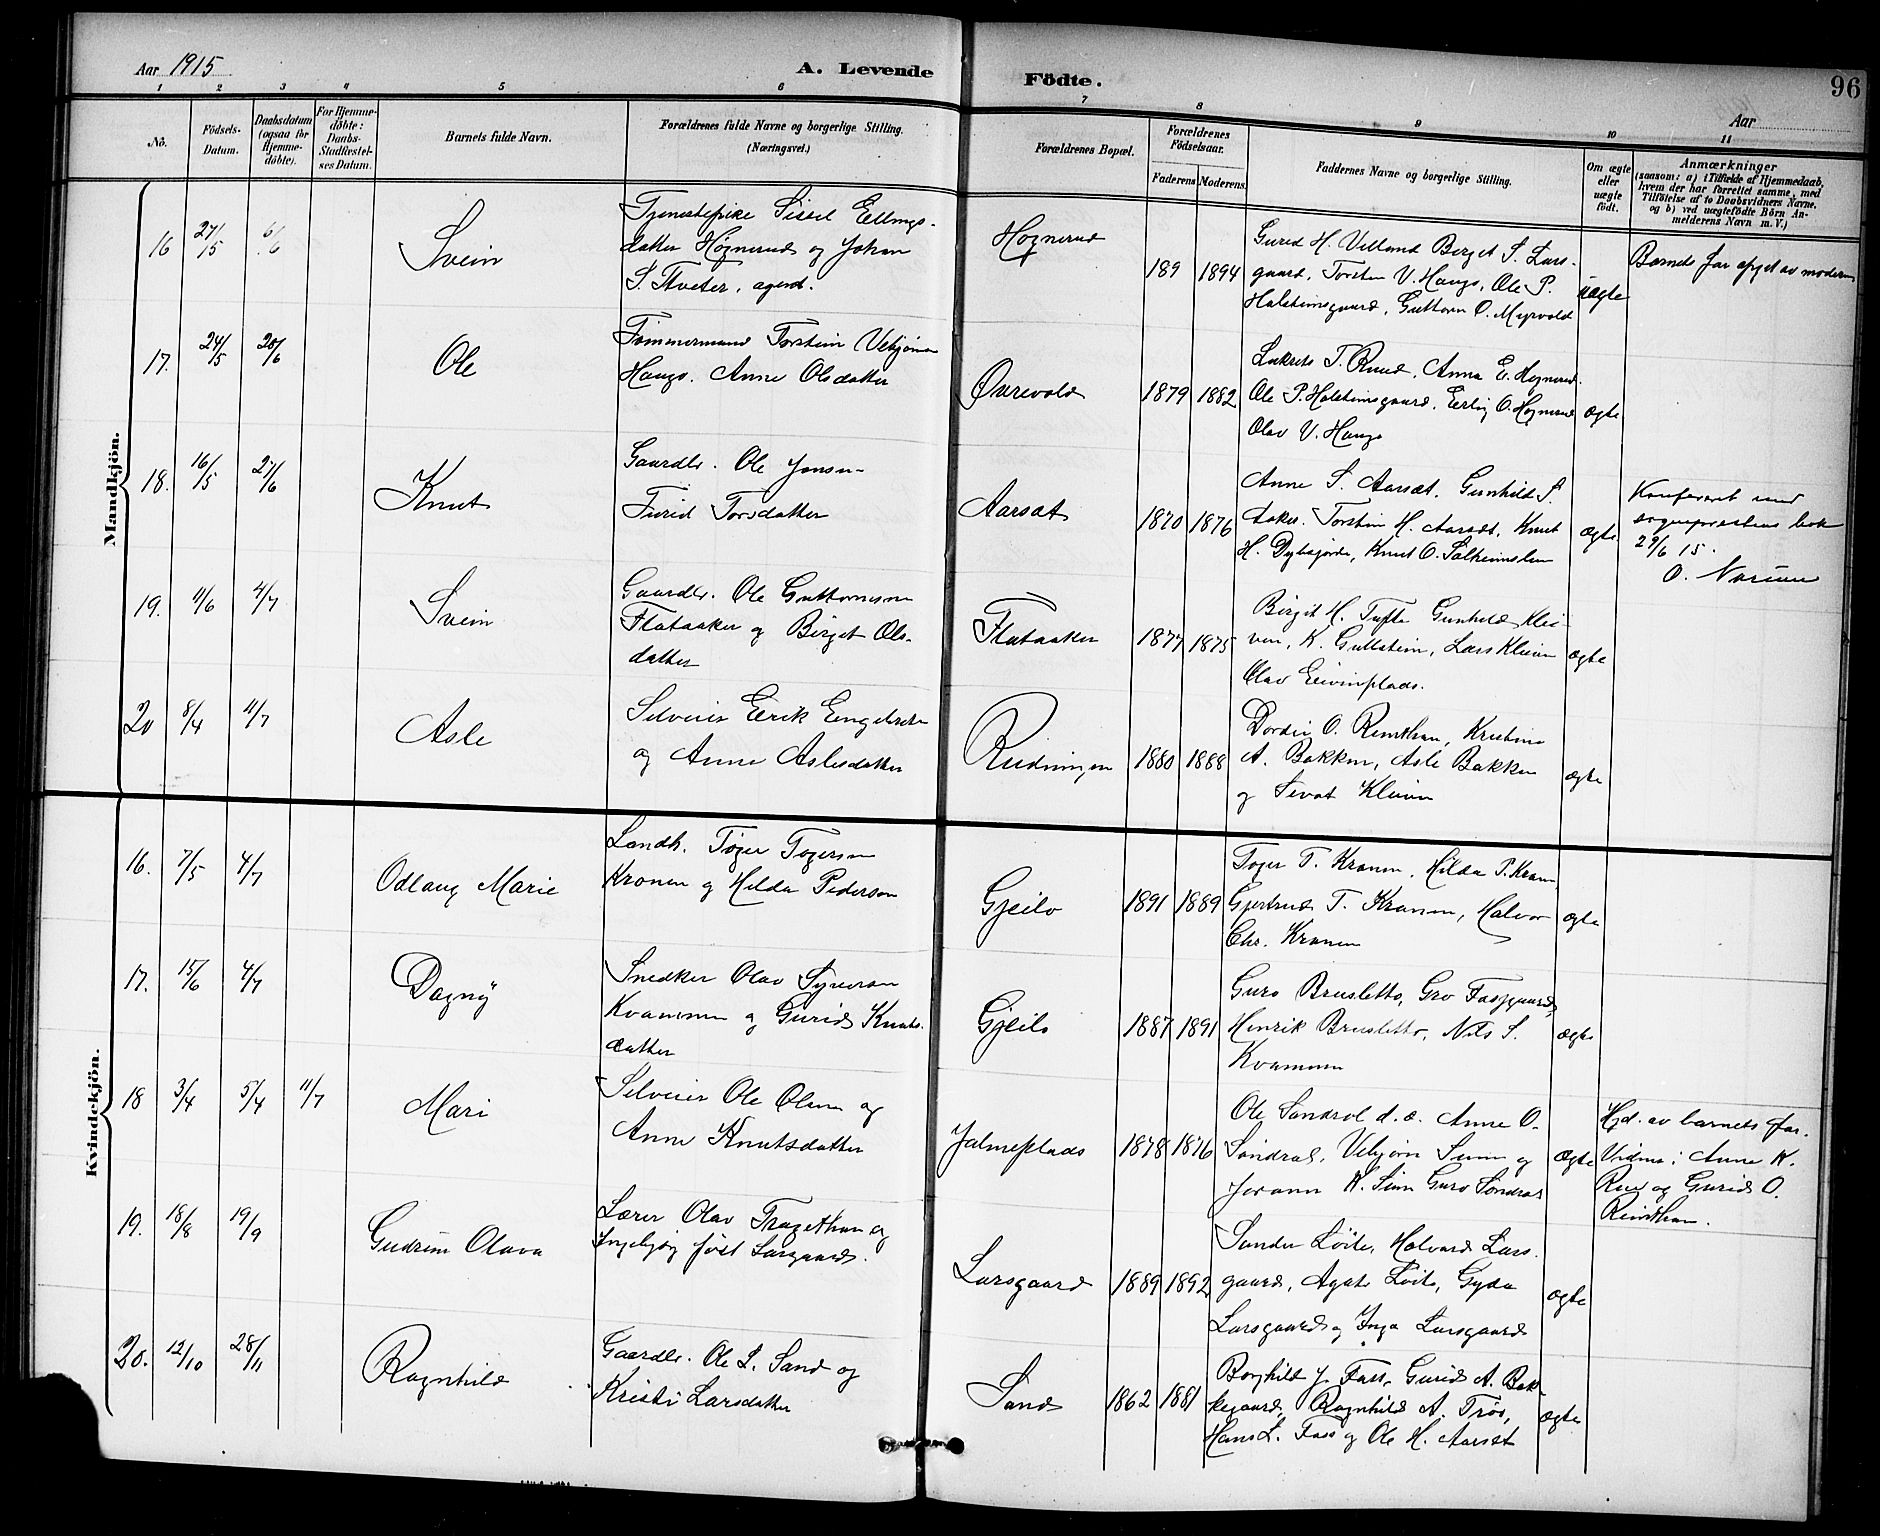 Aar 1915
A. Levende Födte.
96
Aar
1 2 3 4 5 6 7 8 9 10 11
No.
Födsels-Datum.
Daabsdatum (ogsaa för Hjemme-döbte).
For Hjemme-döbte: Daabs-Stadfæstel-ses Datum.
Barnets fulde Navn.
Forældrenes fulde Navne og borgerlige Stilling. (Næringsvei.)
Forældrenes Bopæl.
Forældrenes Födselsaar.
Faderens Moderens.
Faddernes Navne og borgerlige Stilling.
Om ægte eller uægte födt.
Anmærkninger
(saasom: a) i Tilfælde af Hjemmedaab, hvem der har forrettet samme, med Tilföielse af to Daabsvidners Navne, og b) ved uægtefödte Börn Anmelderens Navn m. V.)
Mandkjön.
16 27/5 6/6 Svein
Tjenestepike Sissel Ellings-
datter Høgnerud og Johan
S. Tveter, agent.
Høgnerud 189 1894
Gurid H. Villand Berget S. Lars-
gaard, Torsten V. Haugo, Ole P.
Halsteinsgaard, Guttorm O. Myrvold
uægte
Barnets far opgit av moderen
17. 24/5 20/6 Ole
Tømmermand Torstein Vebjørnsen
Haugo. Anne Olsdatter
1879 1882
T. Ruud, Anna E. Høgnerud
Ole P. Halsteinsgaard, Erling O. Høgnerud
Olav V. Haugo
ægte
18. 16/5 27/6 Knut
Gaardbr. Ole Jonsen
Turid Torsdatter
Aarset 1870 1876
Anne S. Aarset, Gunhild S.
Aaker. Torstein H. Aarset, Knut
H. Dybsjorde, Knut O.
ægte
Konfereret med
sogneprestens bok
29/6 15.
O.
19. 11/6 4/7 Svein
Gaardbr. Ole Guttormsen
Flataaker og Birget Ols-
datter
Flataaker 1877 1875
Birgit H. Tufte Gunhild Klei-
ven, K. Gullstein, Lars Kleiven
Olav Eivinplads.
ægte
20 8/4 11/7 Asle
Selveier Eerik Engebretsen
og Anne Aslesdatter
Rudningen 1880 1888
Dordei O. Reinthon, Kristine
A. Bakken, Asle Bakken
og Sevat Kleiven
ægte
Kvindekjön.
16. 7/5 4/7 Odlaug Marie
Landh. Tøger Tøgersen
Kronen og Hilda Pedersen
Gjeilo 1891 1889
Tøger T. Kronen, Hilda P. Kronen
Gjertrud T. Kronen, Halvor
Chr. Kronen
ægte
17. 15/6 4/7 Dagny
Snedker Olav Syversen
Kvammen og Gurid Knuts-
datter
Gjeilo 1887 1891
Guro Brusletto, Gro
Henrik Brusletto, Nils S.
Kvammen
ægte
18 3/4 5/4 11/7 Mari
Selveier Ole Olsen og
Anne Knutsdatter
Jalmeplads 1878 1876
Ole Sondrol d. æ. Anne O.
Søndral, Vebjørn Sunn og
Jorann K. Sunn Guro Søndral
Ægte
Hjd. av barnets far.
Vidner: Anne K.
Rue og Gurid O.
Reinthon.
19. 18/8 19/9 Gudrun Olava
Lærer Olav Tragethon og
Ingebjørg født Larsgaard.
Larsgaard 1889 1892
Sander Løite, Halvard Lars-
gaard, Agate Løite, Gyda
Larsgaard og Inga Larsgaard
ægte
20. 12/10 28/11 Ragnhild
Gaardbr. Ole L. Sand og
Kristi Larsdatter
Sand 1862 1881
Borghild J. Foss, Gurid A. Bak-
kegaard, Ragnhild A. Trøo,
Hans L. Foss og Ole H. Aarset
ægte